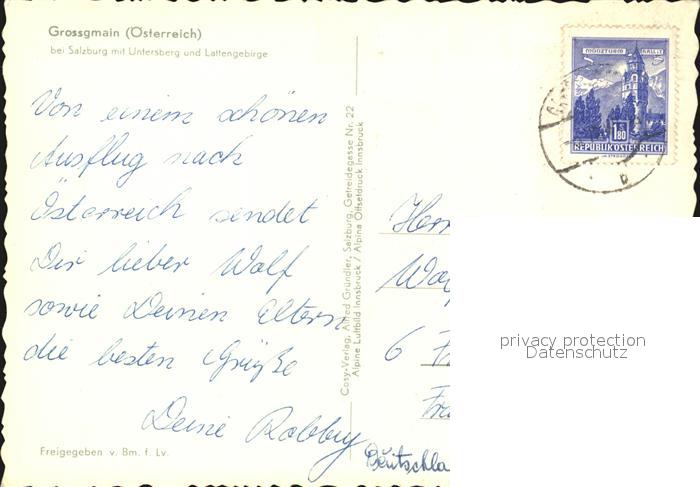 Grossgmain (Österreich)
bei Salzburg mit Untersberg und Lattengebirge
Von einem schönen
Ausflug nach
Österreich sendet
Dir lieber Wolf
sowie Deinen Eltern
die besten Grüße
Deine Robby
Freigegeben v. Bm. f. Lv.
Cosy-Verlag, Alfred Gründler, Salzburg, Getreidegasse Nr. 22
Alpine Luftbild Innsbruck / Alpine Offsetdruck Innsbruck
MÜNZTURM HALL i. T.
1.80
REPUBLIK ÖSTERREICH
Herr
6
Deutschla
privacy protection
Datenschutz